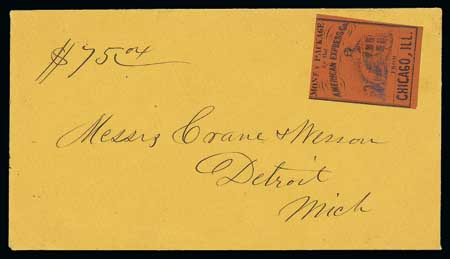 $75.04
MONEY PACKAGE
BY THE
AMERICAN EXPRESS Co.
FROM
CHICAGO, ILL.
Messrs Crane & Wesson
Detroit
Mich